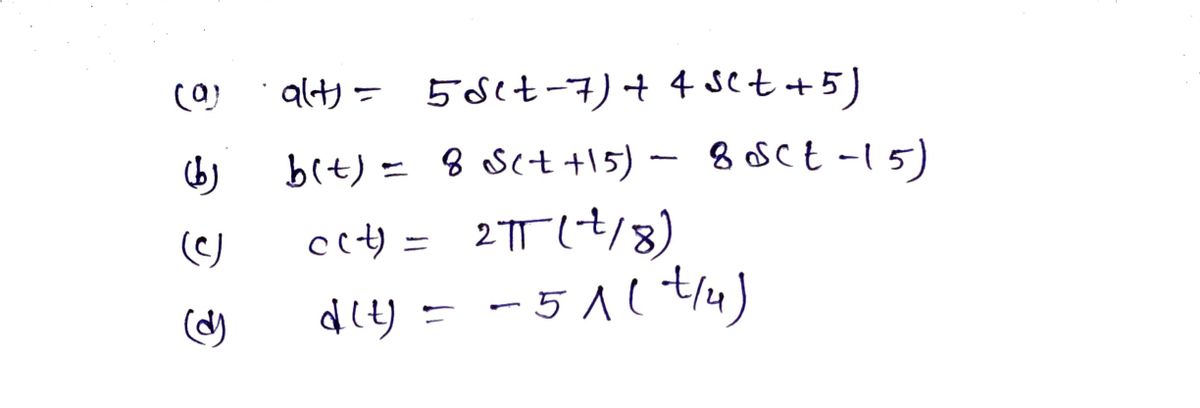 (a) a(t) = 5δ(t-7) + 4δ(t+5)
(b) b(t) = 8δ(t+15) - 8δ(t-15)
(c) c(t) = 2Π(t/8)
(d) d(t) = -5Λ(t/4)